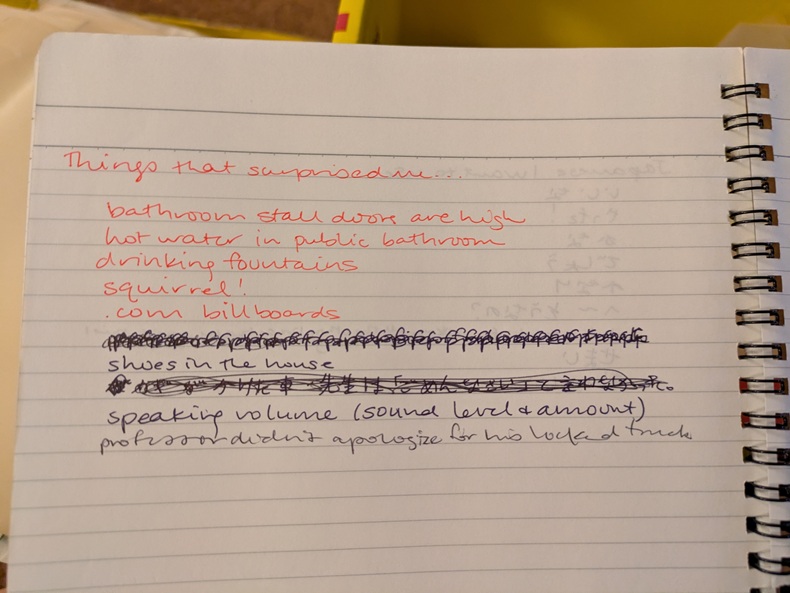 Things that surprised me...
bathroom stall doors are high
hot water in public bathroom
drinking fountains
squirrel!
.com billboards
shoes in the house
speaking volume (sound level & amount)
professor didn't apologize for his locked truck